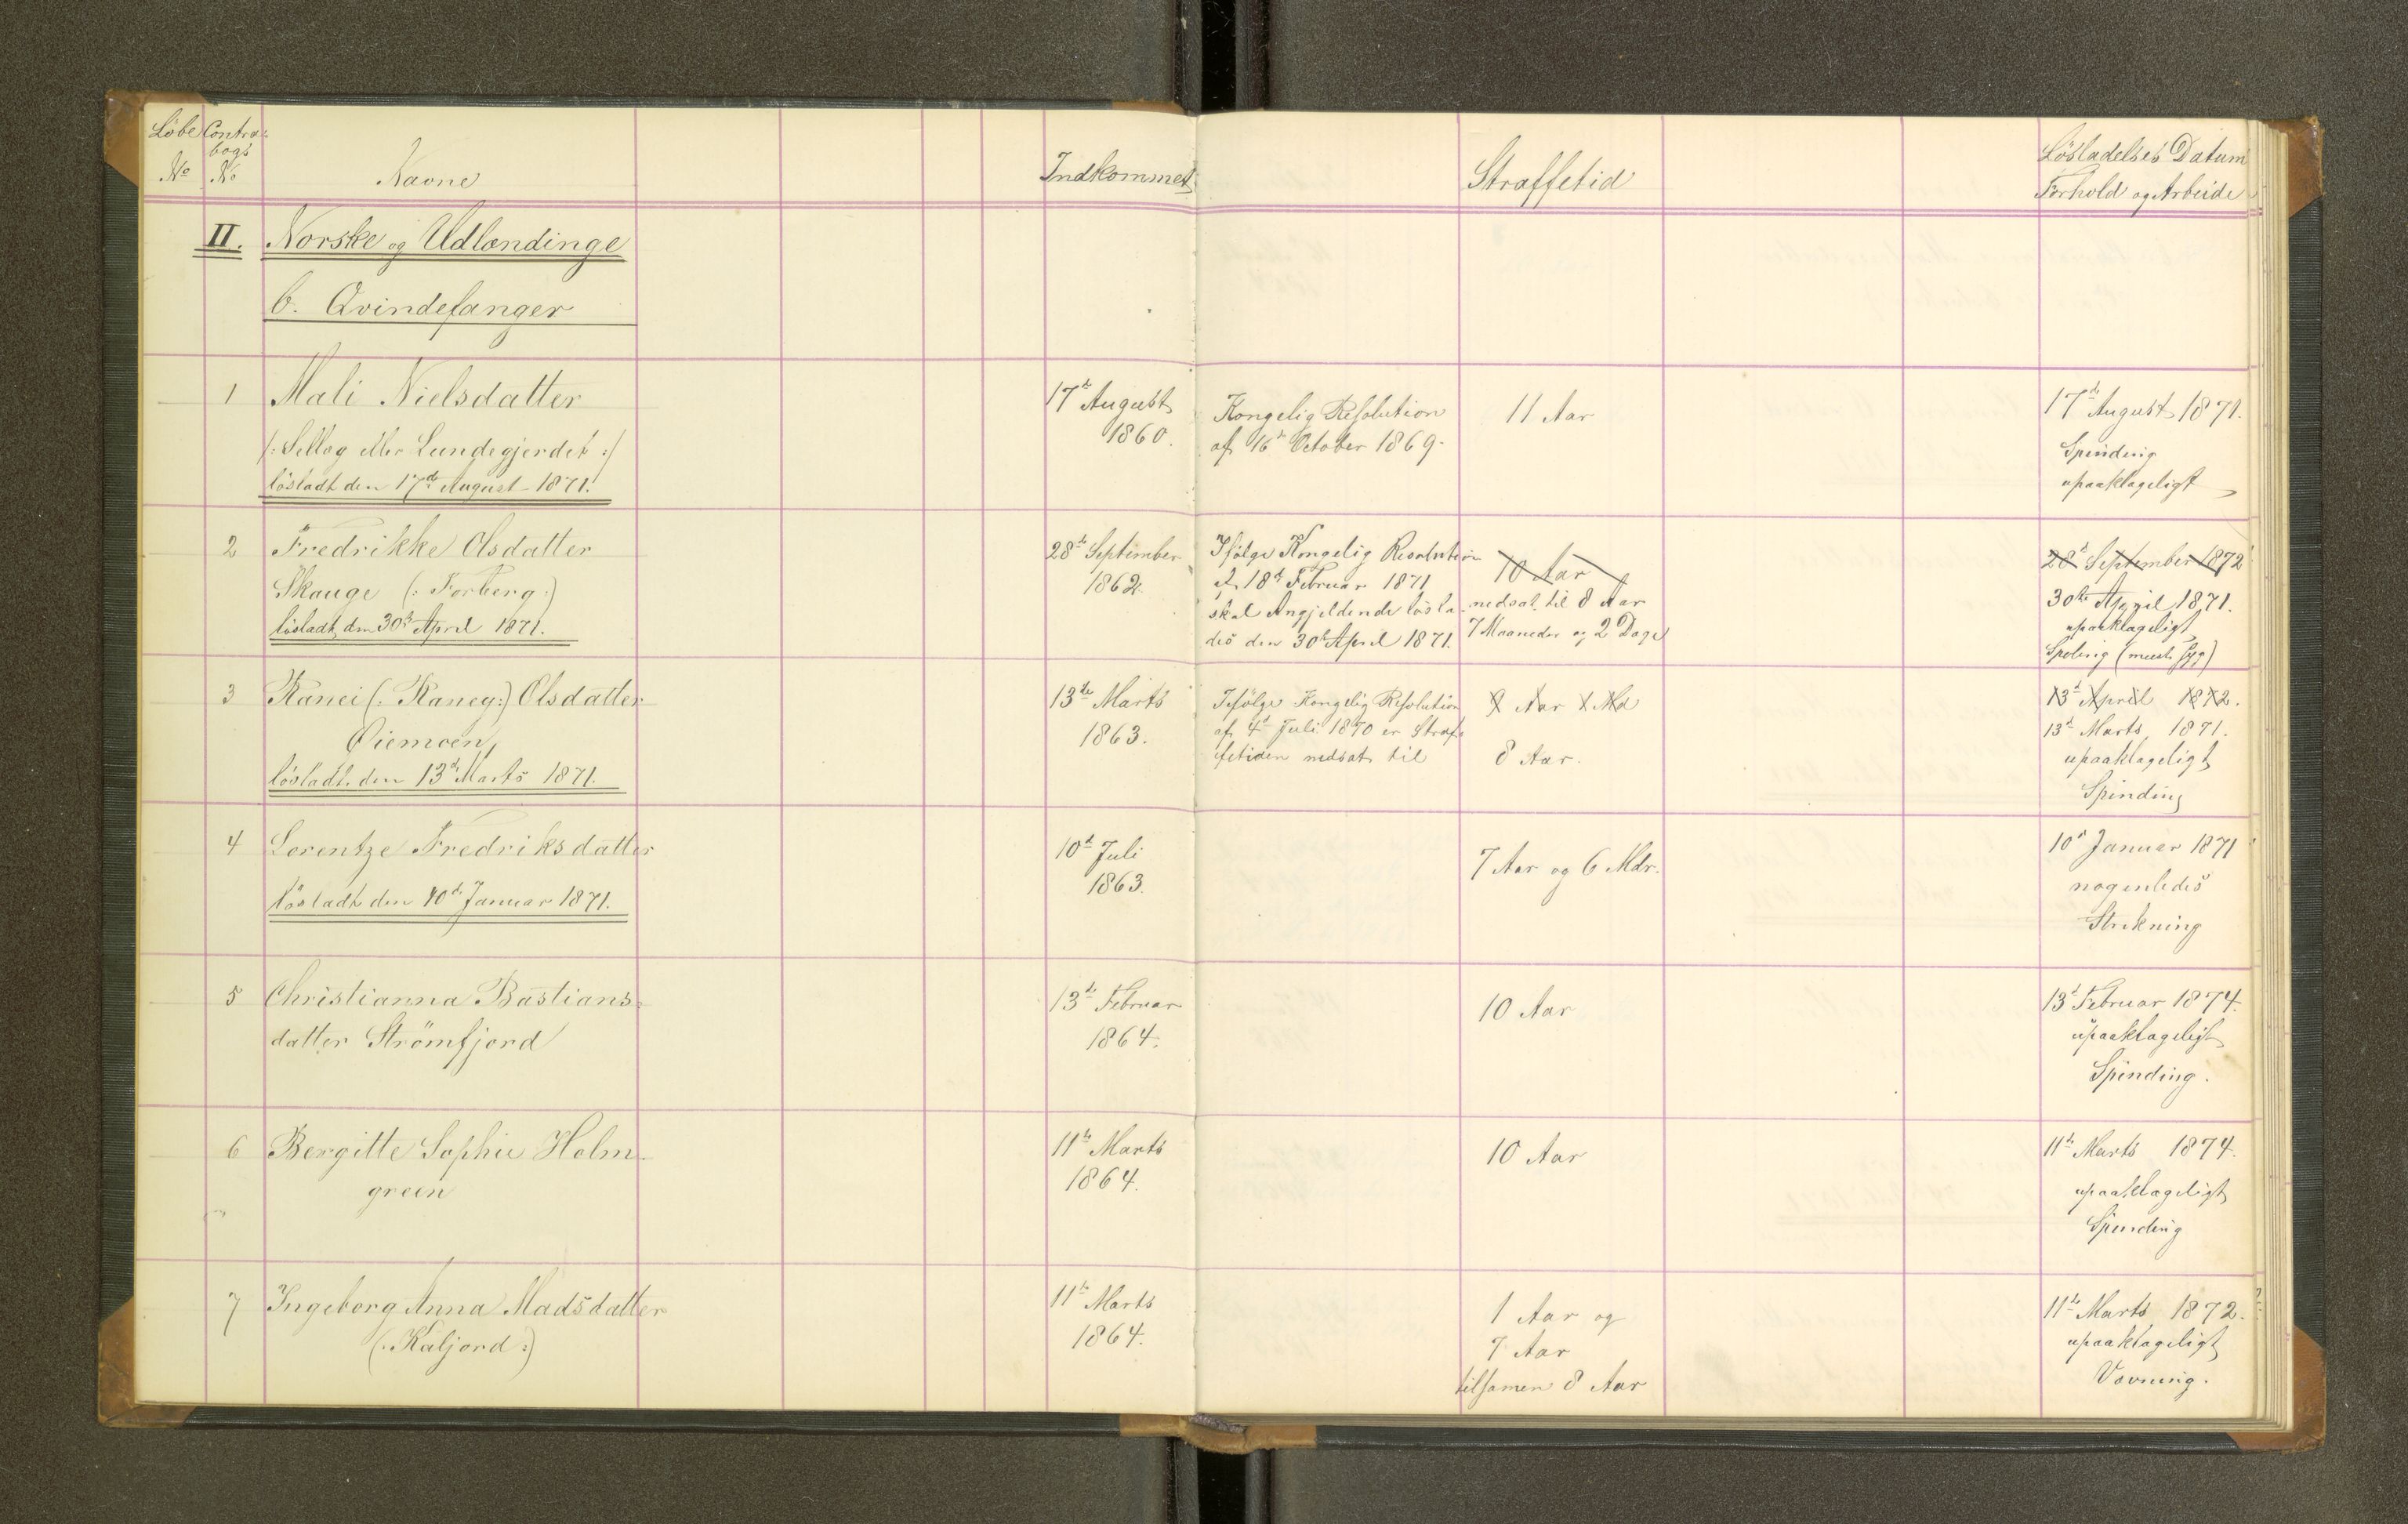 Löbe Contra-
bogs
No No Navne Indkommet Straffetid Lösladelses Datum
Forhold og Arbeide
II. Norske og Udlændinge
b. Qvindefanger
1 Mali Nielsdatter 17de August 1860. Kongelig Resolution 11 Aar 17de August 1871.
/: Sellog eller Lundegjerdet :/ af 16de October 1869. Spinding
lösladt den 17de August 1871. upaaklageligt
2 Fredrikke Olsdatter 28de September Ifölge Kongelig Resolution 10 Aar 28de September 1872
Skauge (: Forberg :) 1862. af 18de Februar 1871 nedsat til 8 Aar 30te April 1871.
lösladt den 30te April 1871. skal Angjeldende lösla- 7 Maaneder og 2 Dage upaaklageligt
des den 30te April 1871. Spoling (meest syg)
3 Ranei (: Raney :) Olsdatter 13de Marts Ifölge Kongelig Resolution 9 Aar 1 Md 13de April 1872.
Oiemoen, 1863. af 4de Juli 1870 er Straf- 13de Marts 1871.
lösladt den 13de Marts 1871. fetiden nedsat til 8 Aar. upaaklageligt
Spinding
4 Lorentze Fredriksdatter 10de Juli 7 Aar og 6 Mdr. 10de Januar 1871
lösladt den 10de Januar 1871. 1863. nogenledes
Strikning
5 Christianna Bastians- 13de Februar 10 Aar 13de Februar 1874.
datter Strömfjord 1864. upaaklageligt
Spinding.
6 Bergitte Sophie Holm- 11te Marts 10 Aar 11te Marts 1874.
green 1864. upaaklageligt
Spinding
7 Ingeborg Anna Madsdatter 11te Marts 1 Aar og 11te Marts 1872.
(: Kaljord :) 1864. 7 Aar upaaklageligt
tilsamen 8 Aar Vævning.